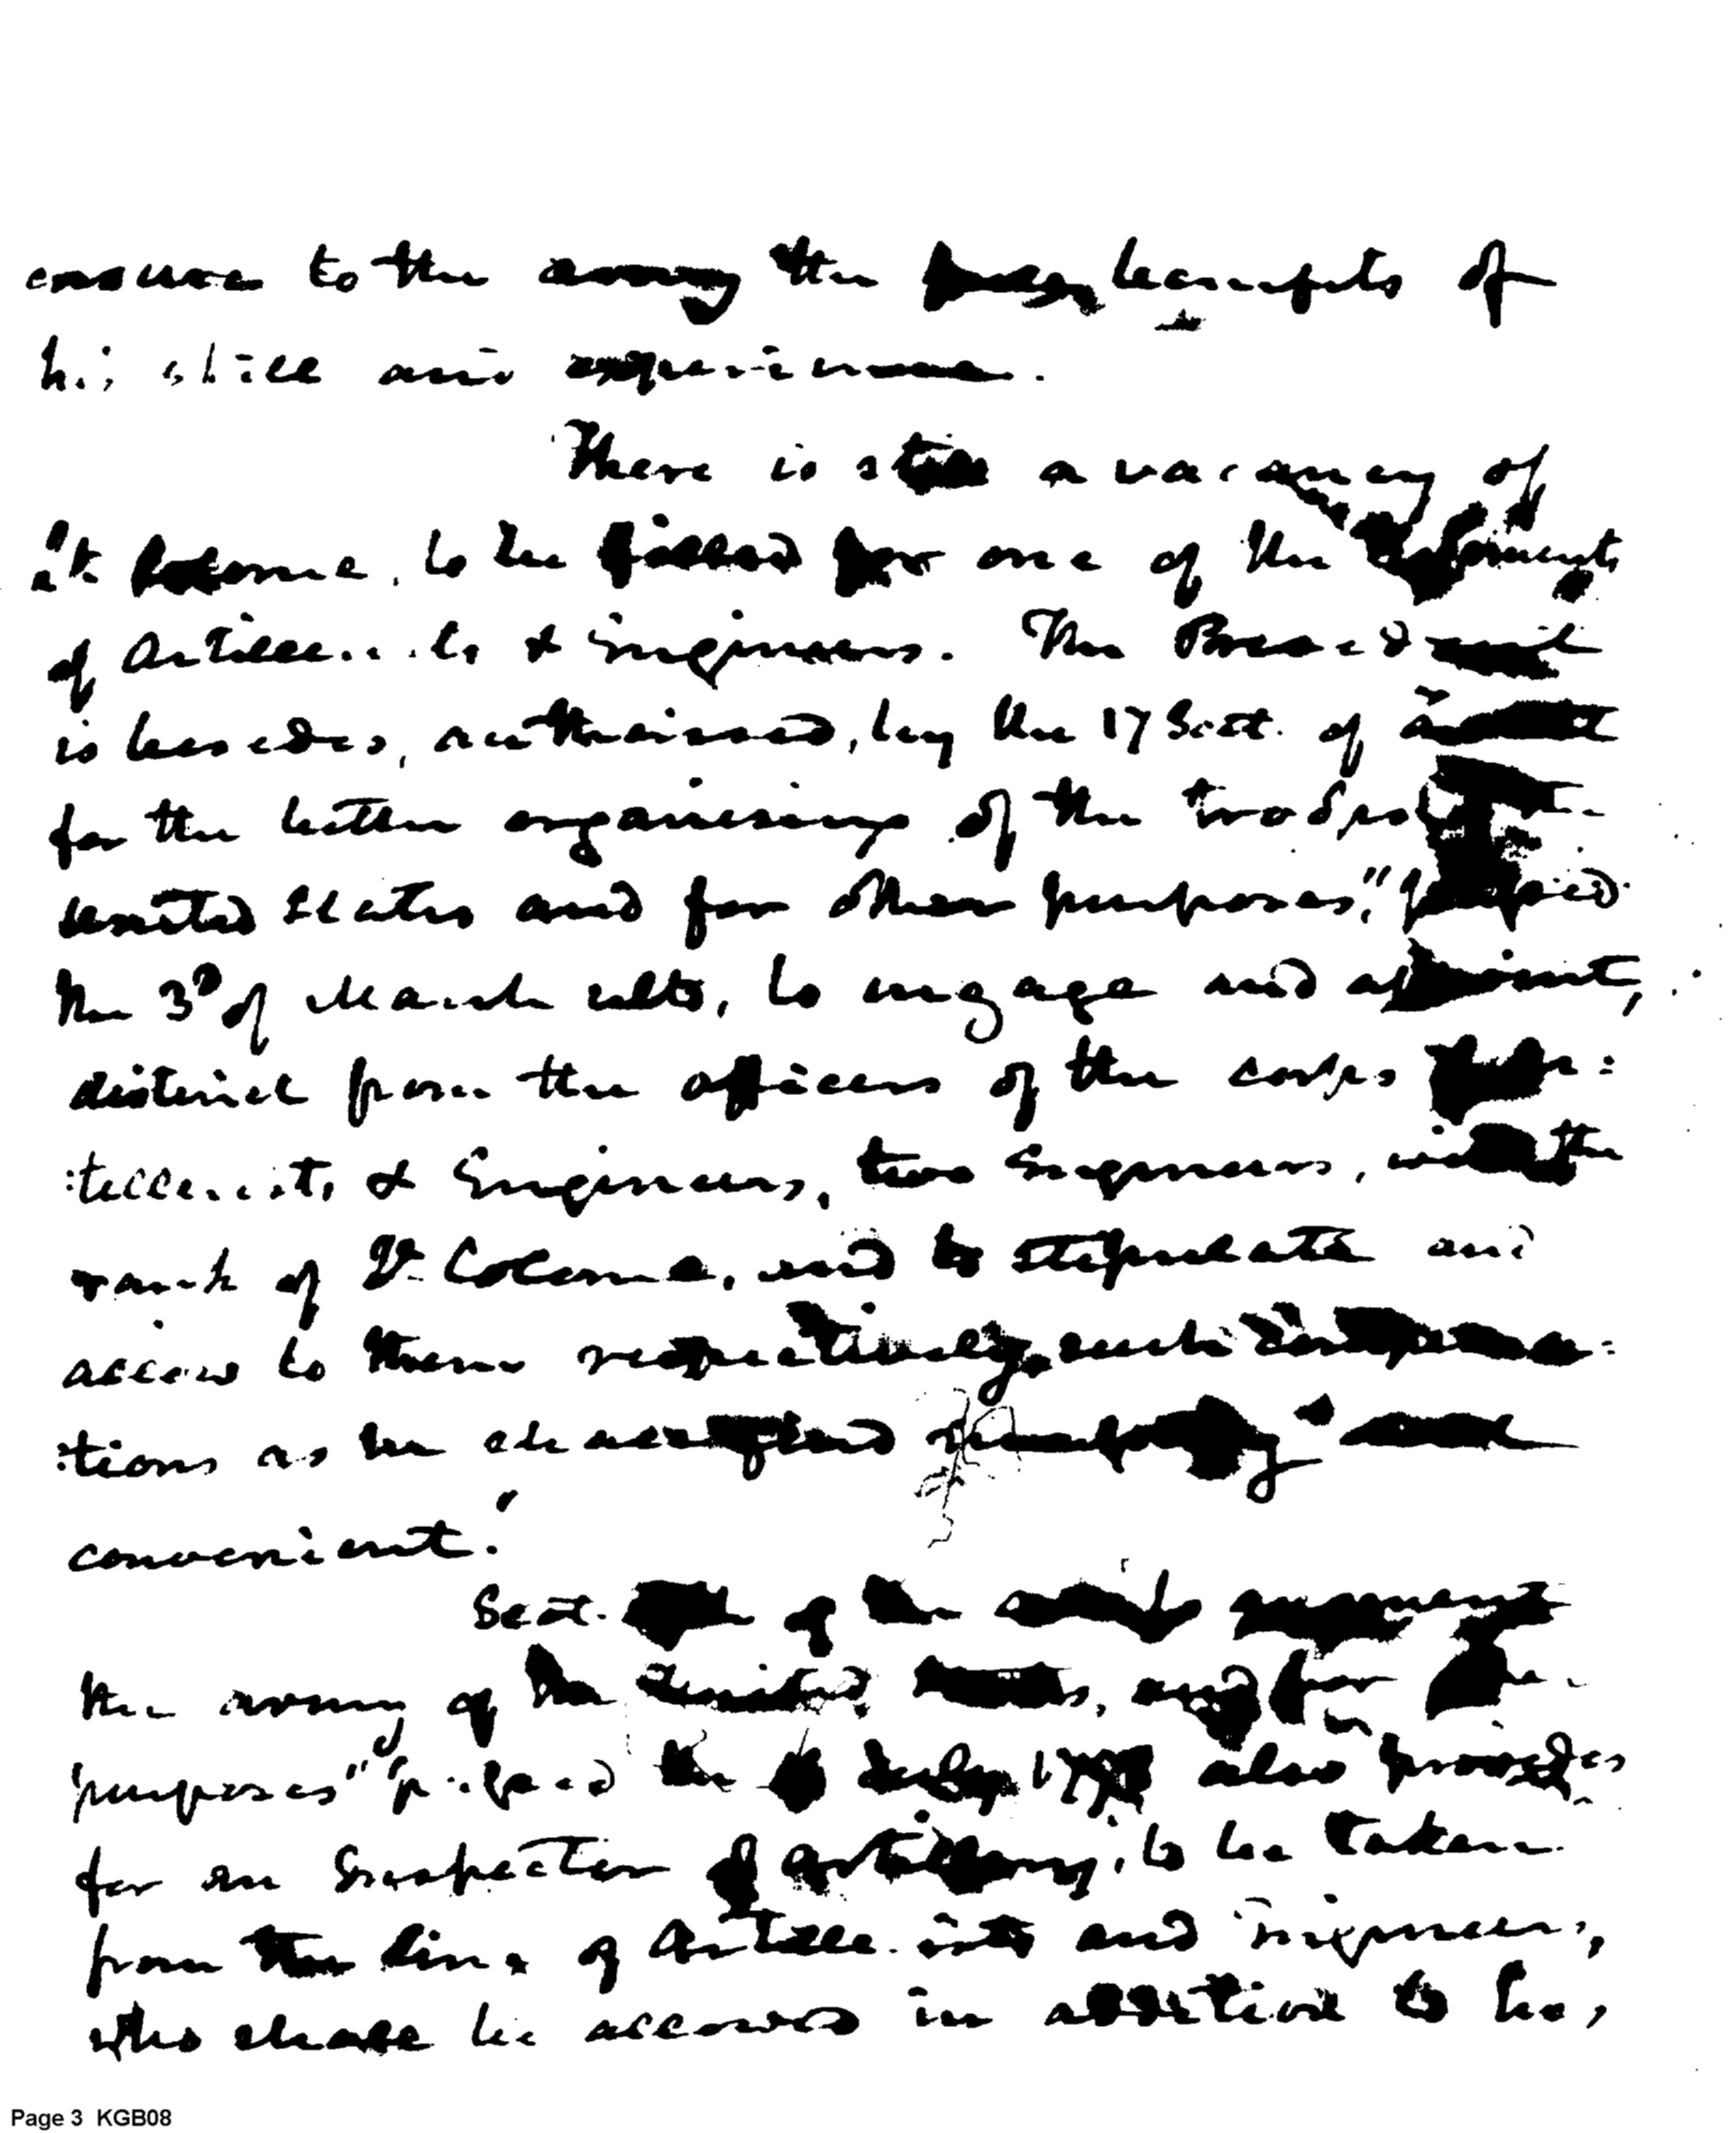 ensure to the army the full benefits of
his skill and experience.
There is still a vacancy of
Lt to be filled for one of the Regiments
of Artillerists & Engineers. The President
is besides, authorised, by the 17 Sect. of
for the better organising of the troops
United States and for other purposes," passed
the 3d of March ulto, to engage and appoint,
distinct from the officers of the corps of Ar:
:tillerists & Engineers, two Engineers, with the
rank of Lt Colonel, and to stipulate and
allow to them respectively such compensa:
:tions as he shall find and
convenient."
Sect. of the act to augment
the army of the United States, and for other
purposes" passed the July also provides
for an Inspector of artillery, to be taken
from the line of Artillerists and Engineers,
who shall be allowed in addition to his,
Page 3 KGB08